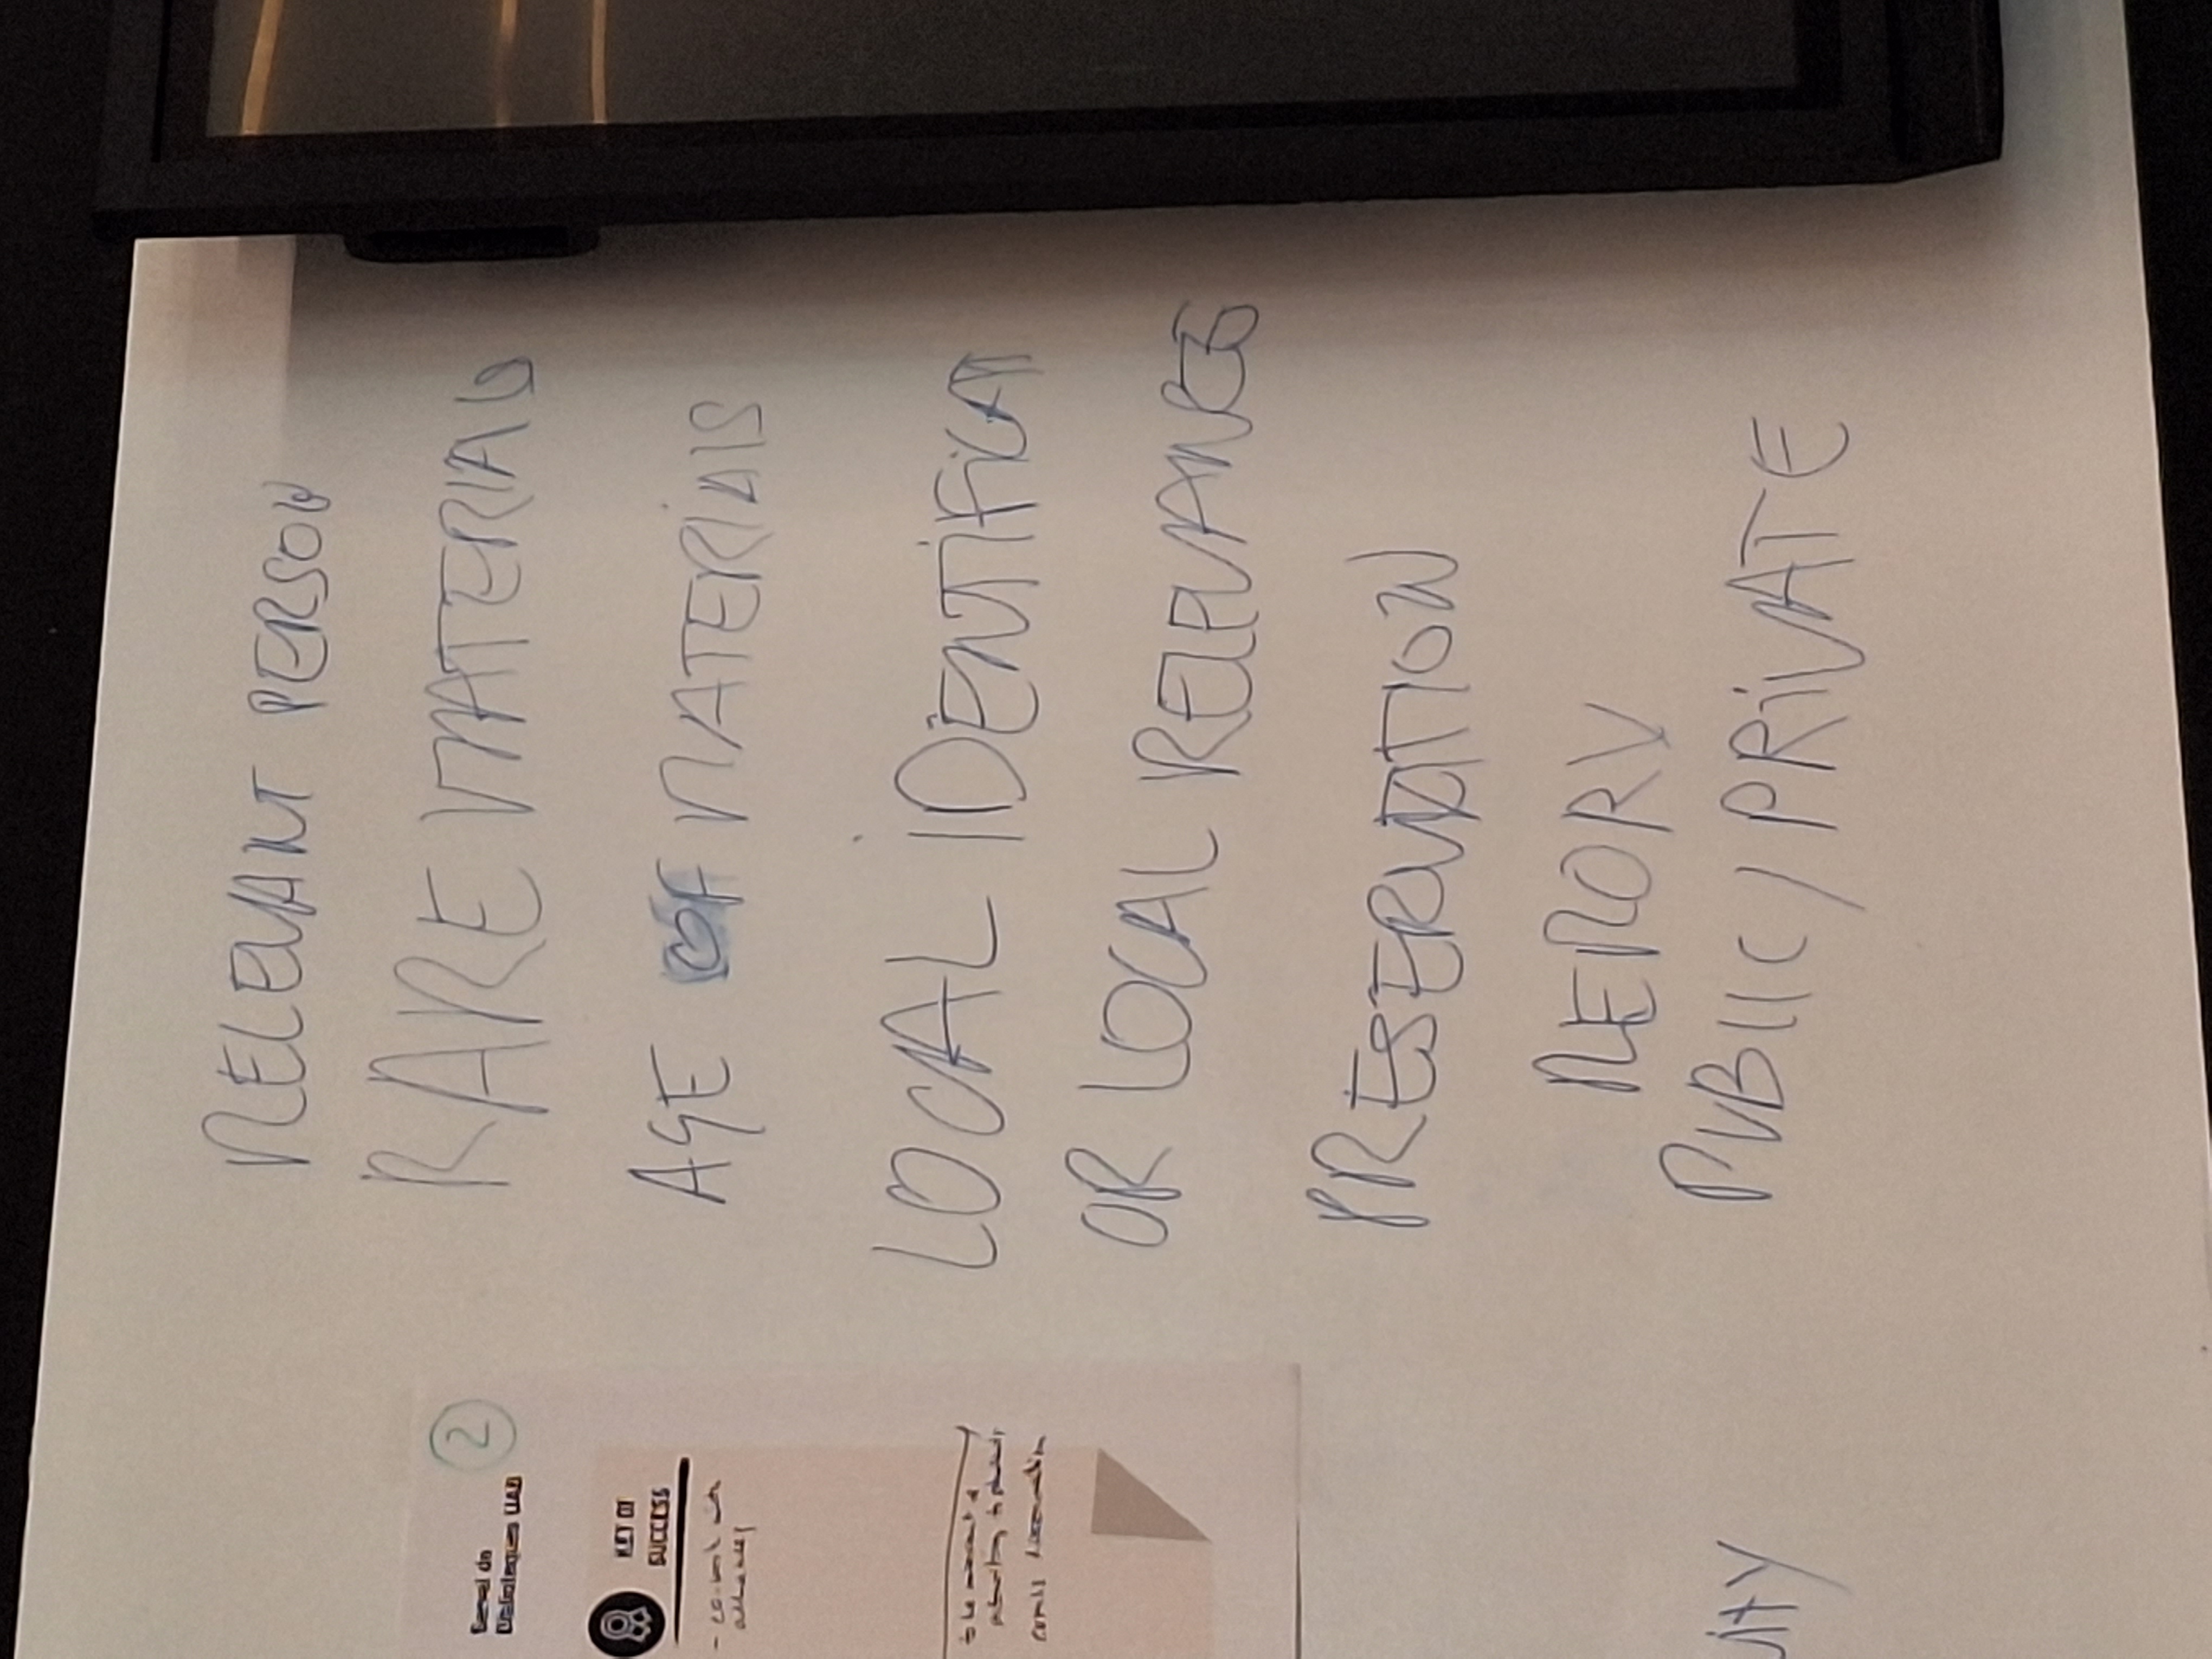 RELEVANT PERSON
RARE MATERIALS
AGE OF MATERIALS
LOCAL IDENTIFICAT
OR LOCAL RELEVANCES
PRESERVATION
MEMORY
PUBLIC / PRIVATE
2
Servei de
Biblioteques UAB
KEY OF
SUCCESS
vity